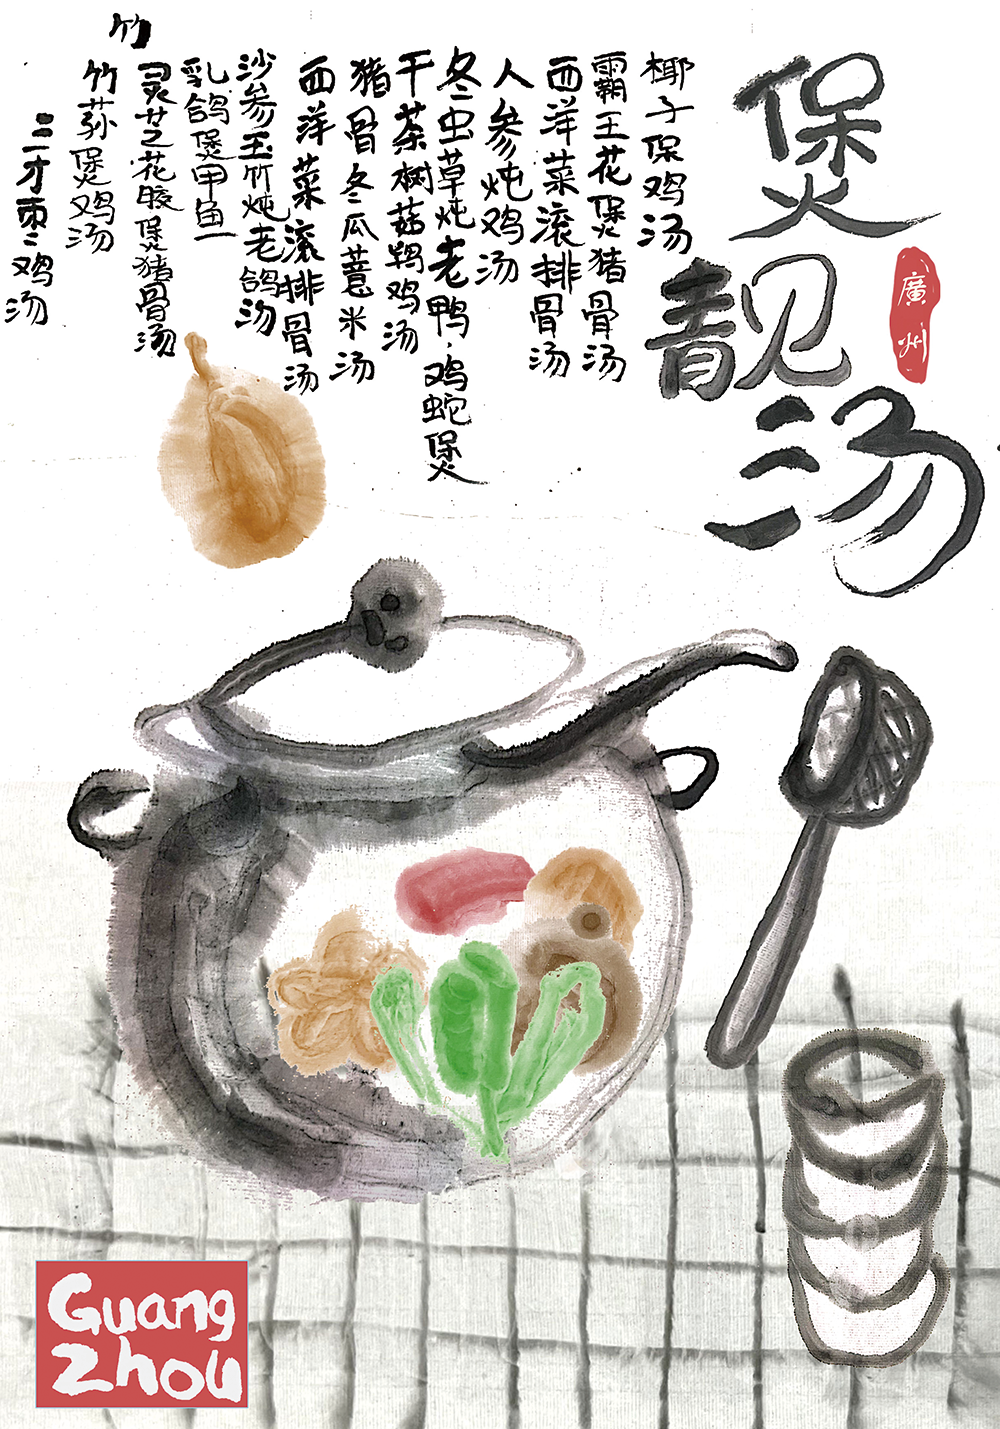 煲靓汤
廣州
椰子保鸡汤
霸王花煲猪骨汤
西洋菜滚排骨汤
人参炖鸡汤
冬虫草炖老鸭.鸡蛇煲
干茶树菇鸡汤
猪骨冬瓜薏米汤
西洋菜滚排骨汤
沙参玉竹炖老鸽汤
乳鸽煲甲鱼
灵芝花胶煲猪骨汤
竹
竹荪煲鸡汤
三才枣鸡汤
Guang
Zhou